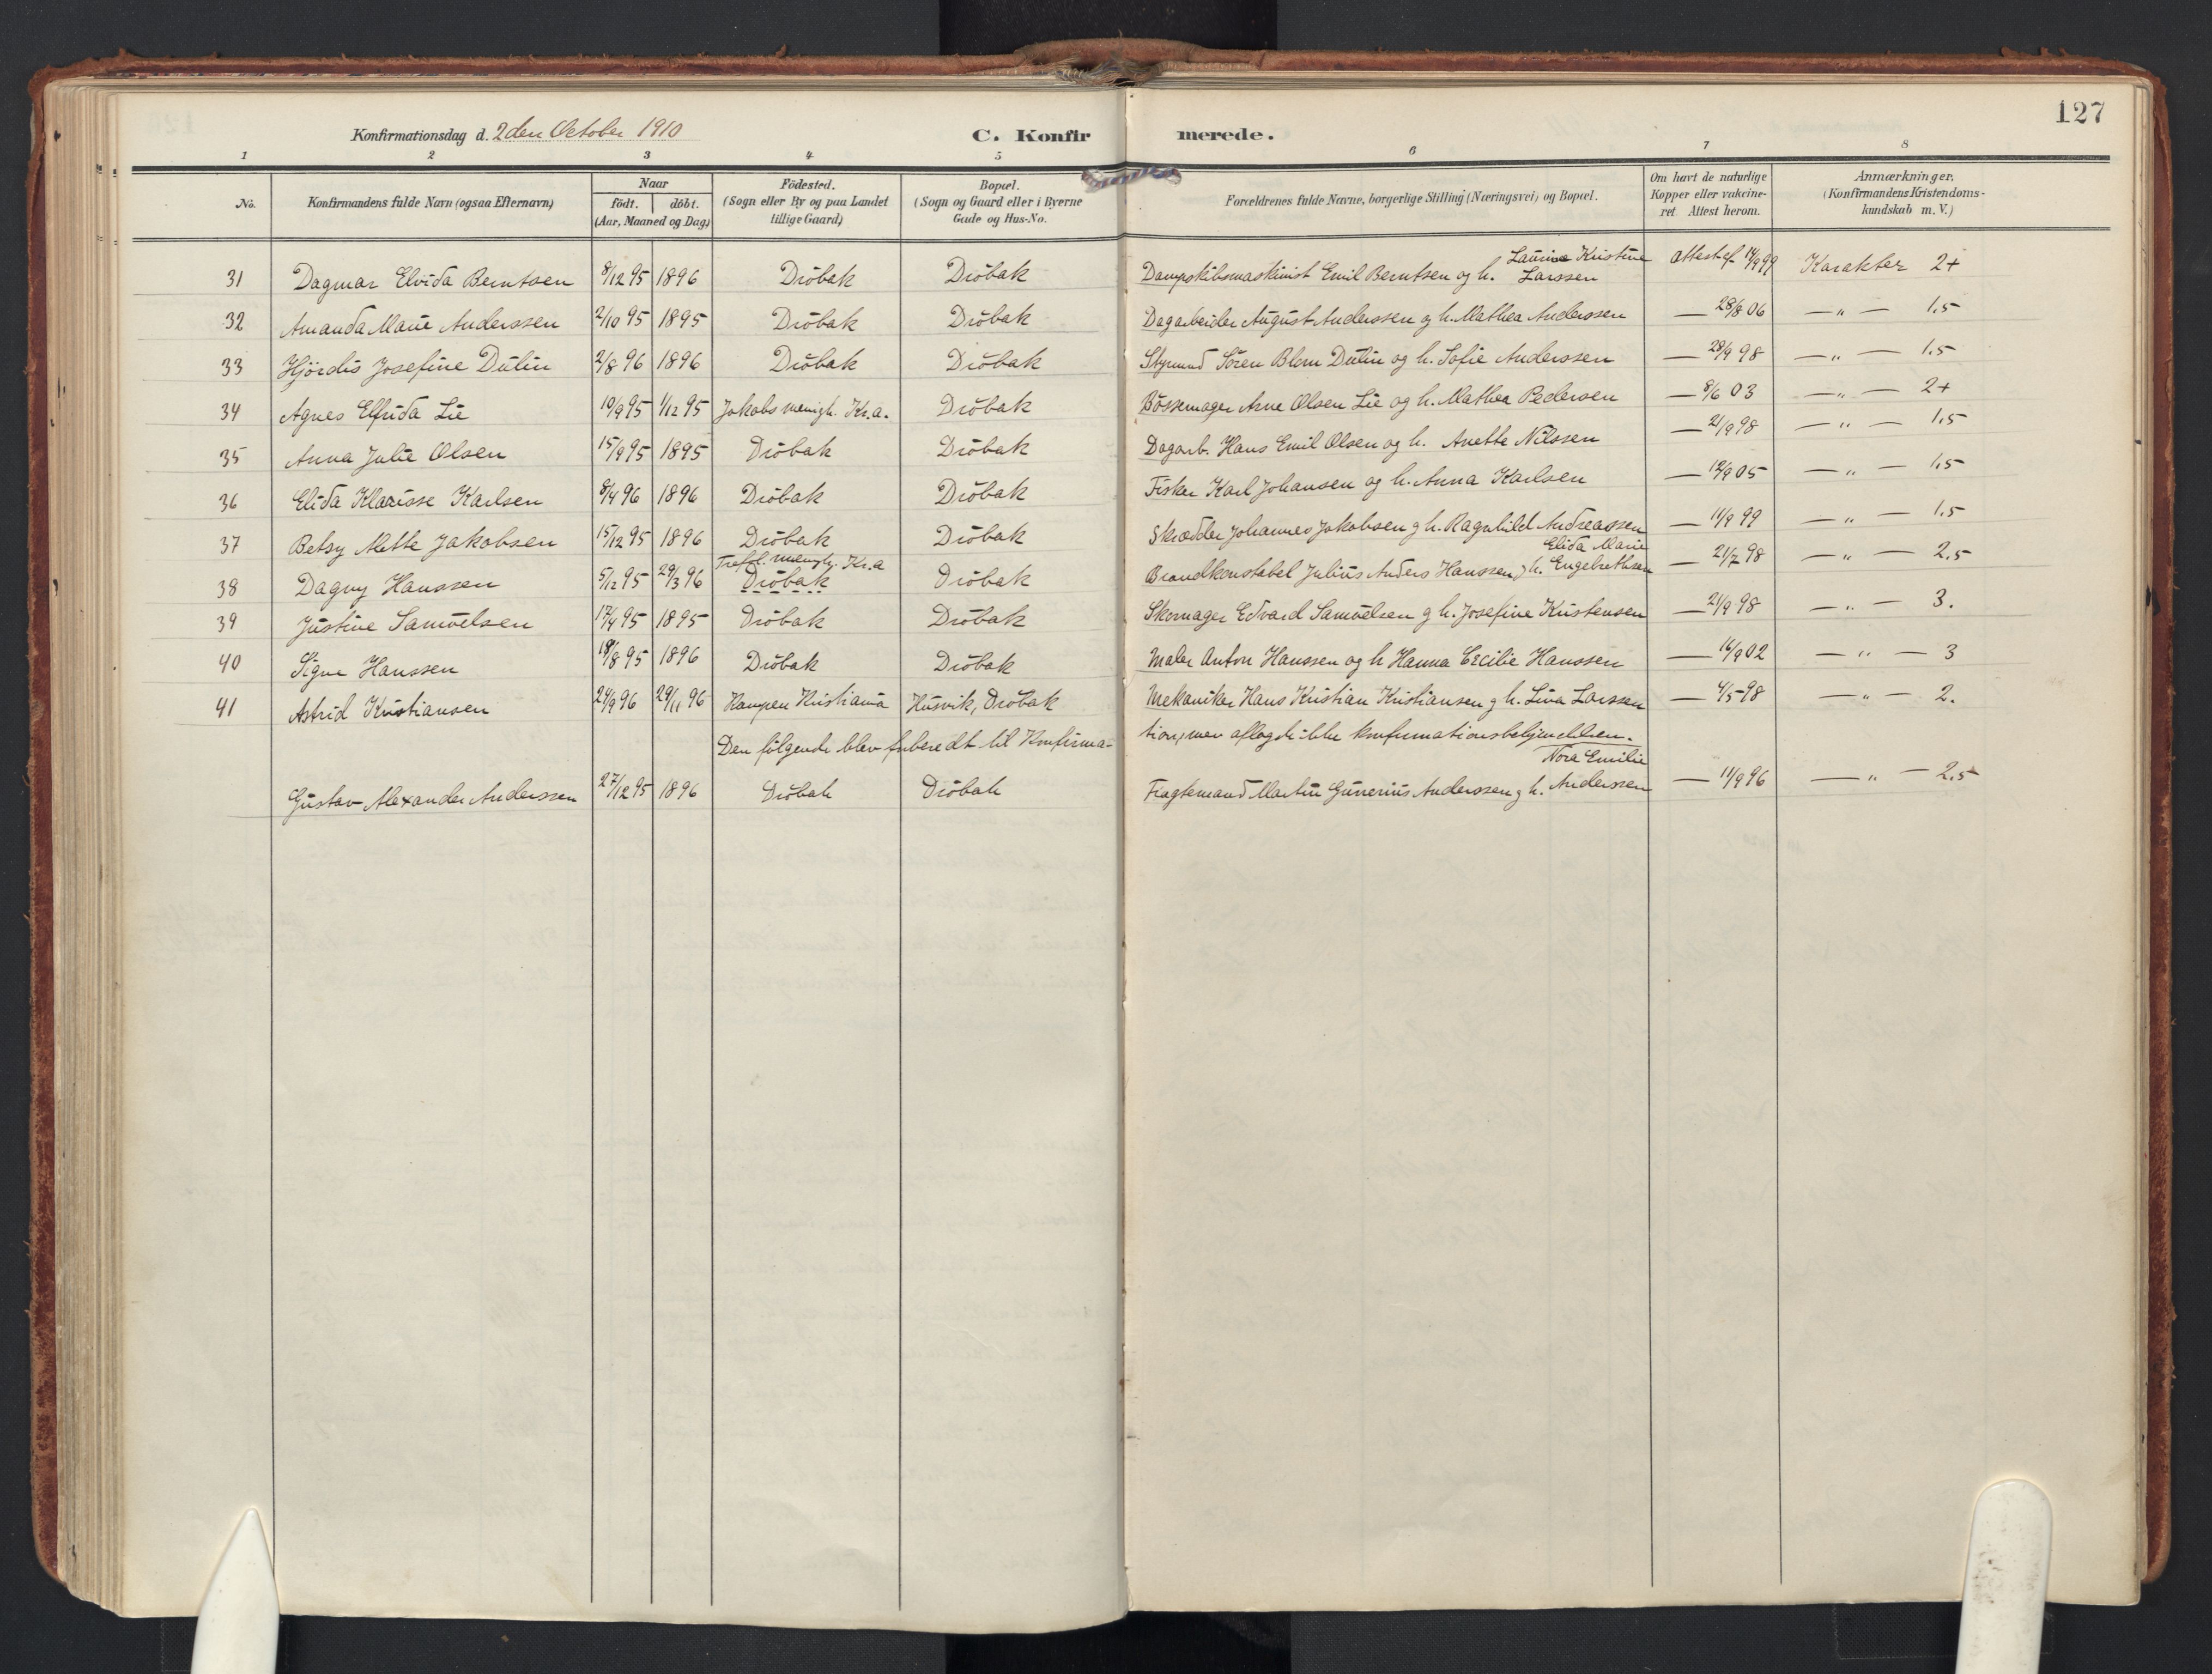 127
Konfirmationsdag d. 2den October 1910 C. Konfirmerede.
1 2 3 4 5 6 7 8
No. Konfirmandens fulde Navn (ogsaa Efternavn) Naar födt. döbt. (Aar, Maaned og Dag) Födested. (Sogn eller By og paa Landet tillige Gaard) Bopæl. (Sogn og Gaard eller i Byerne Gade og Hus-No. Forældrenes fulde Navne, borgerlige Stilling (Næringsvei) og Bopæl. Om havt de naturlige Kopper eller vakcineret. Attest herom. Anmærkninger. (Konfirmandens Kristendomskundskab m. V.)
31 Dagmar Elvida Berntsen 8/12 95 1896 Dröbak Dröbak Dampskibsmaskinist Emil Berntsen og h. Laurine Kristine Larssen Attest af 14/9 99 Karakter 2+
32 Amanda Marie Anderssen 2/10 95 1895 Dröbak Dröbak Dagarbeider August Anderssen og h. Mathea Anderssen — 28/8 06 — " — 1.5
33 Hjördis Josefine Dulin 2/8 96 1896 Dröbak Dröbak Styrmand Sören Blom Dulin og h. Sofie Anderssen — 28/9 98 — " — 1.5
34 Agnes Elfrida Lie 10/9 95 1/12 95 Jakobs menigh. Kr.a. Dröbak Bössemager Arne Olsen Lie og h. Mathea Pedersen — 8/6 03 — " — 2+
35 Anna Julie Olsen 15/9 95 1895 Dröbak Dröbak Dagarb. Hans Emil Olsen og h. Anette Nilssen — 21/9 98 — " — 1.5
36 Elida Klarisse Karlsen 8/4 96 1896 Dröbak Dröbak Fisker Karl Johansen og h. Anna Karlsen — 12/9 05 — " — 1.5
37 Betsy Mette Jakobsen 15/12 95 1896 Dröbak Dröbak Skrædder Johannes Jakobsen og h. Ragnhild Andreassen — 11/9 99 — " — 1.5
38 Dagny Hanssen 5/12 95 29/3 96 Trefol. menigh. Kr.a Dröbak Dröbak Brandkonstabel Julius Anders Hanssen og h. Elida Marie Engebrethsen — 21/7 98 — " — 2.5
39 Justine Samuelsen 17/4 95 1895 Dröbak Dröbak Skomager Edvard Samuelsen og h. Josefine Kristensen — 21/9 98 — " — 3.
40 Signe Hanssen 18/8 95 1896 Dröbak Dröbak Maler Anton Hanssen og h Hanna Cecilie Hanssen — 16/9 02 — " — 3
41 Astrid Kristiansen 24/9 96 29/11 96 Kampen Kristiania Husvik, Dröbak Mekaniker Hans Kristian Kristiansen og h. Lina Larssen — 4/5 98 — " — 2.
Den følgende blev forberedt til Konfirmation, men aflagde ikke konfirmationsbekjendelsen.
Gustav Alexander Anderssen 27/12 95 1896 Dröbak Dröbak Fragtemand Martin Gunerius Anderssen og h. Nora Emilie Anderssen — 11/9 96 — " — 2.5